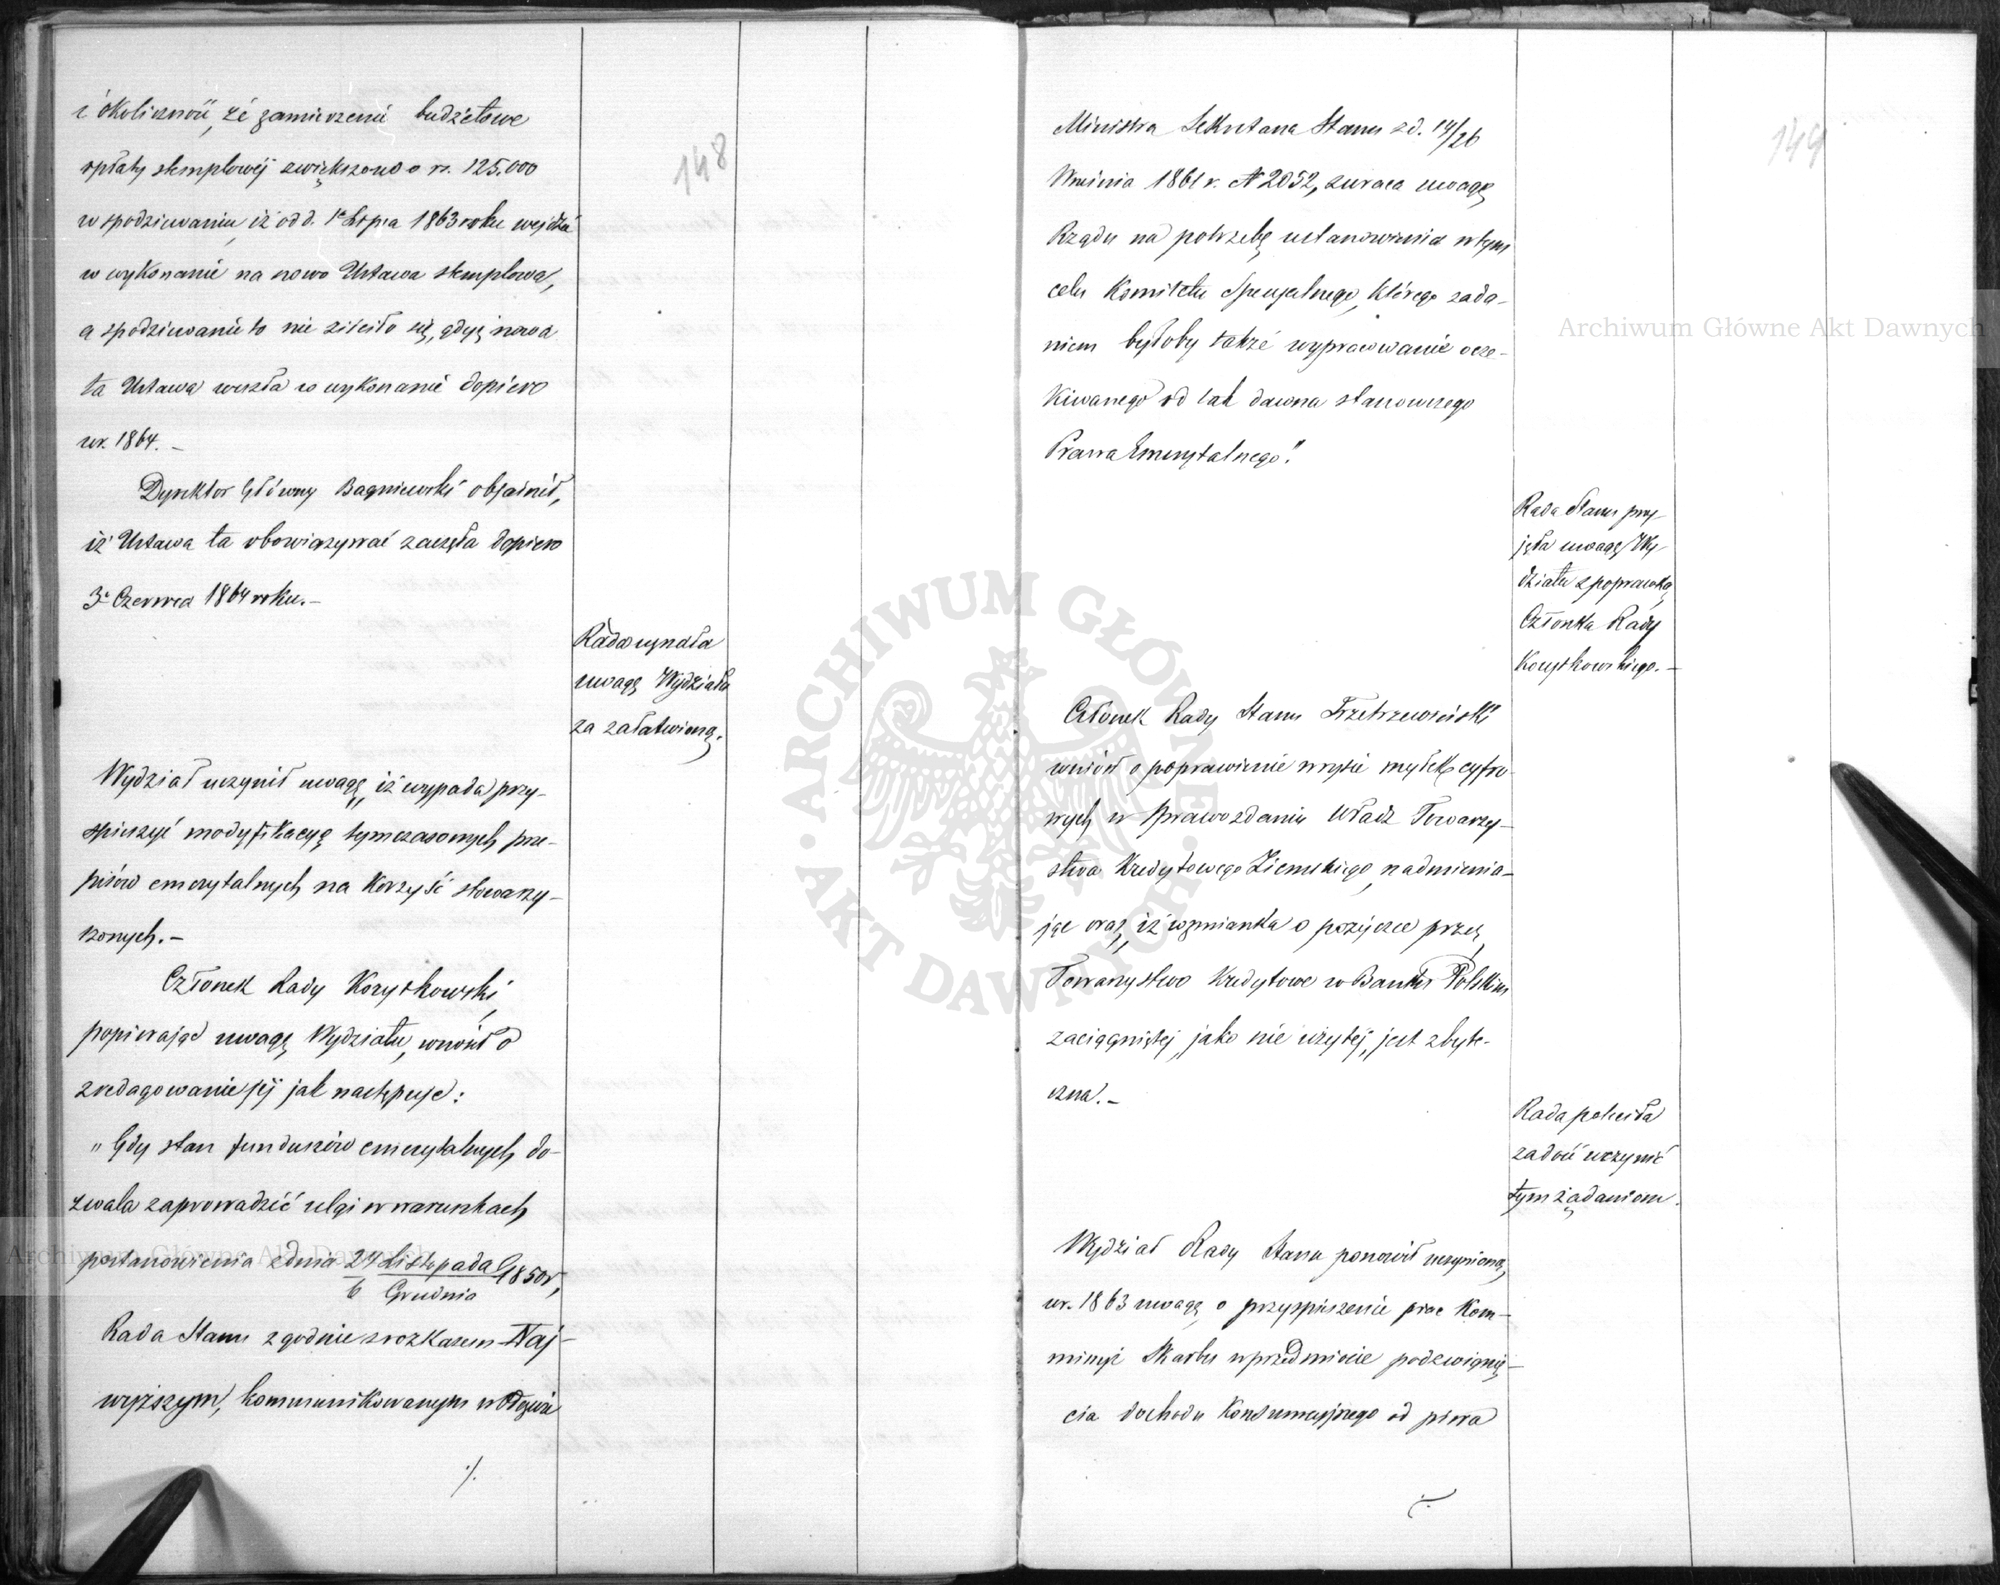 z okoliczności, że zamierzenie budżetowe
opłaty stemplowéj zwiększono o rs. 125.000
w spodziewaniu, iż od d. 1o Lipca 1863 roku wejdzie
w wykonanie na nowo Ustawa stemplowa,
a spodziewanie to nie ziściło się, gdyż nowa
ta Ustawa weszła w wykonanie dopiero
w r. 1864. –
Dyrektor Główny Bagniewski objaśnił,
iż Ustawa ta obowiązywać zaczęła dopiero
3o Czerwca 1864 roku. –
Rada uznała
uwagę Wydziału
za załatwioną.
Wydział uczynił uwagę, iż wypada przy-
spieszyć modyfikacyą tymczasowych prze-
pisów emerytalnych na korzyść stowarzy-
szonych. –
Członek Rady Korytkowski,
popierając uwagę Wydziału, wniósł o
zredagowanie jéj jak następuje:
„Gdy stan funduszów emerytalnych do-
zwala zaprowadzić ulgi w warunkach
postanowienia z dnia 24 Listopada / 6 Grudnia 1850 r,
Rada Stanu zgodnie z rozkazem Naj-
wyższym, kommunikowanym w Odezwie
./.
148
Ministra Sekretarza Stanu z d. 14/26
Września 1861 r. N 2052, zwraca uwagę
Rządu na potrzebę ustanowienia w tym
celu Komitetu Specyalnego, którego zada-
niem byłoby także wypracowanie ocze-
kiwanego od tak dawna stanowczego
Prawa Emerytalnego."
Rada Stanu przy-
jęła uwagę Wy-
działu z poprawką
Członka Rady
Korytkowskiego. –
Członek Rady Stanu Trzetrzewiński
wniósł o poprawienie w ryzie myłek cyfro-
wych w Sprawozdaniu Władz Towarzy-
stwa Kredytowego Ziemskiego, nadmienia-
jąc oraz, iż wzmianka o pożyczce przez
Towarzystwo Kredytowe w Banku Polskim
zaciągniętej, jako nie użytej, jest zbyte-
czna. –
Rada poleciła
zadość uczynić
tym żądaniom.
Wydział Rady Stanu ponowił uczynioną
w r. 1863 uwagę o przyspieszenie prac Kom-
missyi Skarbu w przedmiocie podźwignię-
cia dochodu Konsumcyjnego od piwa
./.
149
Archiwum Główne Akt Dawnych
Archiwum Główne Akt Dawnych
· ARCHIWUM GŁÓWNE · AKT DAWNYCH ·